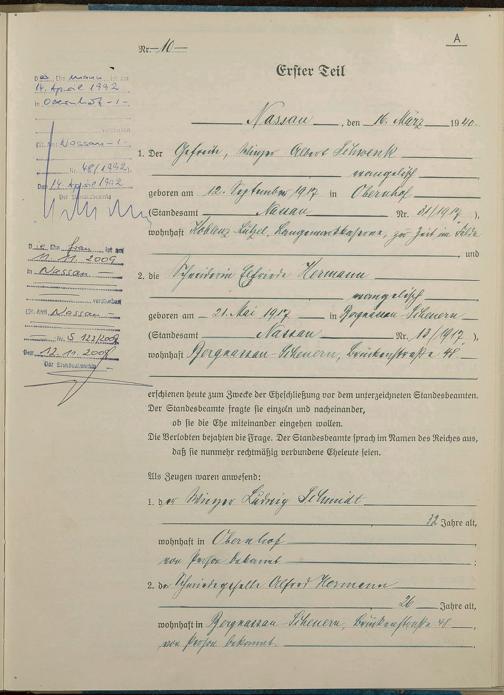 A
Nr. 10
Erster Teil
Nassau, den 16. März 1940.
1. Der Gefreite, Winzer Albert Schwenk
evangelisch
geboren am 12. September 1917 in Obernhof
(Standesamt Nassau Nr. 31/1917),
wohnhaft Koblenz-Lützel, Langemarckkaserne, zur Zeit im Felde
, und
2. die Schneiderin Elfriede Hermann
evangelisch
geboren am 21. Mai 1917 in Bergnassau-Scheuern
(Standesamt Nassau Nr. 13/1917),
wohnhaft Bergnassau-Scheuern, Brückenstraße 48
erschienen heute zum Zwecke der Eheschließung vor dem unterzeichneten Standesbeamten.
Der Standesbeamte fragte sie einzeln und nacheinander,
ob sie die Ehe miteinander eingehen wollen.
Die Verlobten bejahten die Frage. Der Standesbeamte sprach im Namen des Reiches aus,
daß sie nunmehr rechtmäßig verbundene Eheleute seien.
Als Zeugen waren anwesend:
1. der Winzer Ludwig Schmidt
72 Jahre alt,
wohnhaft in Obernhof
von Person bekannt ;
2. der Schmiedegeselle Alfred Hermann
26 Jahre alt,
wohnhaft in Bergnassau-Scheuern, Brückenstraße 48
von Person bekannt.
Der Ehemann ist am
14. April 1992
in Obernhof
verstorben
Nassau
Nr. 48/1992
Den 14. April 1992
Der Standesbeamte
Die Frau ist am
11.11.2009
in Nassau
verstorben
Nassau
Nr. S 122/2009
Den 12.11.2009
Der Standesbeamte